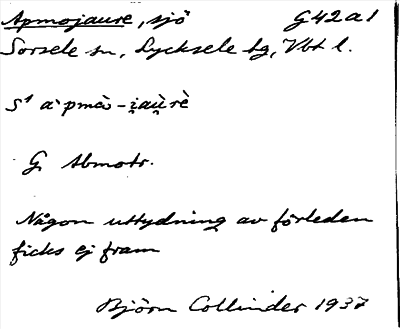 Apmojaure, sjö G42a1
Sorsele sn, Lycksele tg, Vbt l.
S¹ a'pmȧ̀ - i̯aù̯rè
G. Abmotr.
Någon uttydning av förleden
ficks ej fram
Björn Collinder 1937